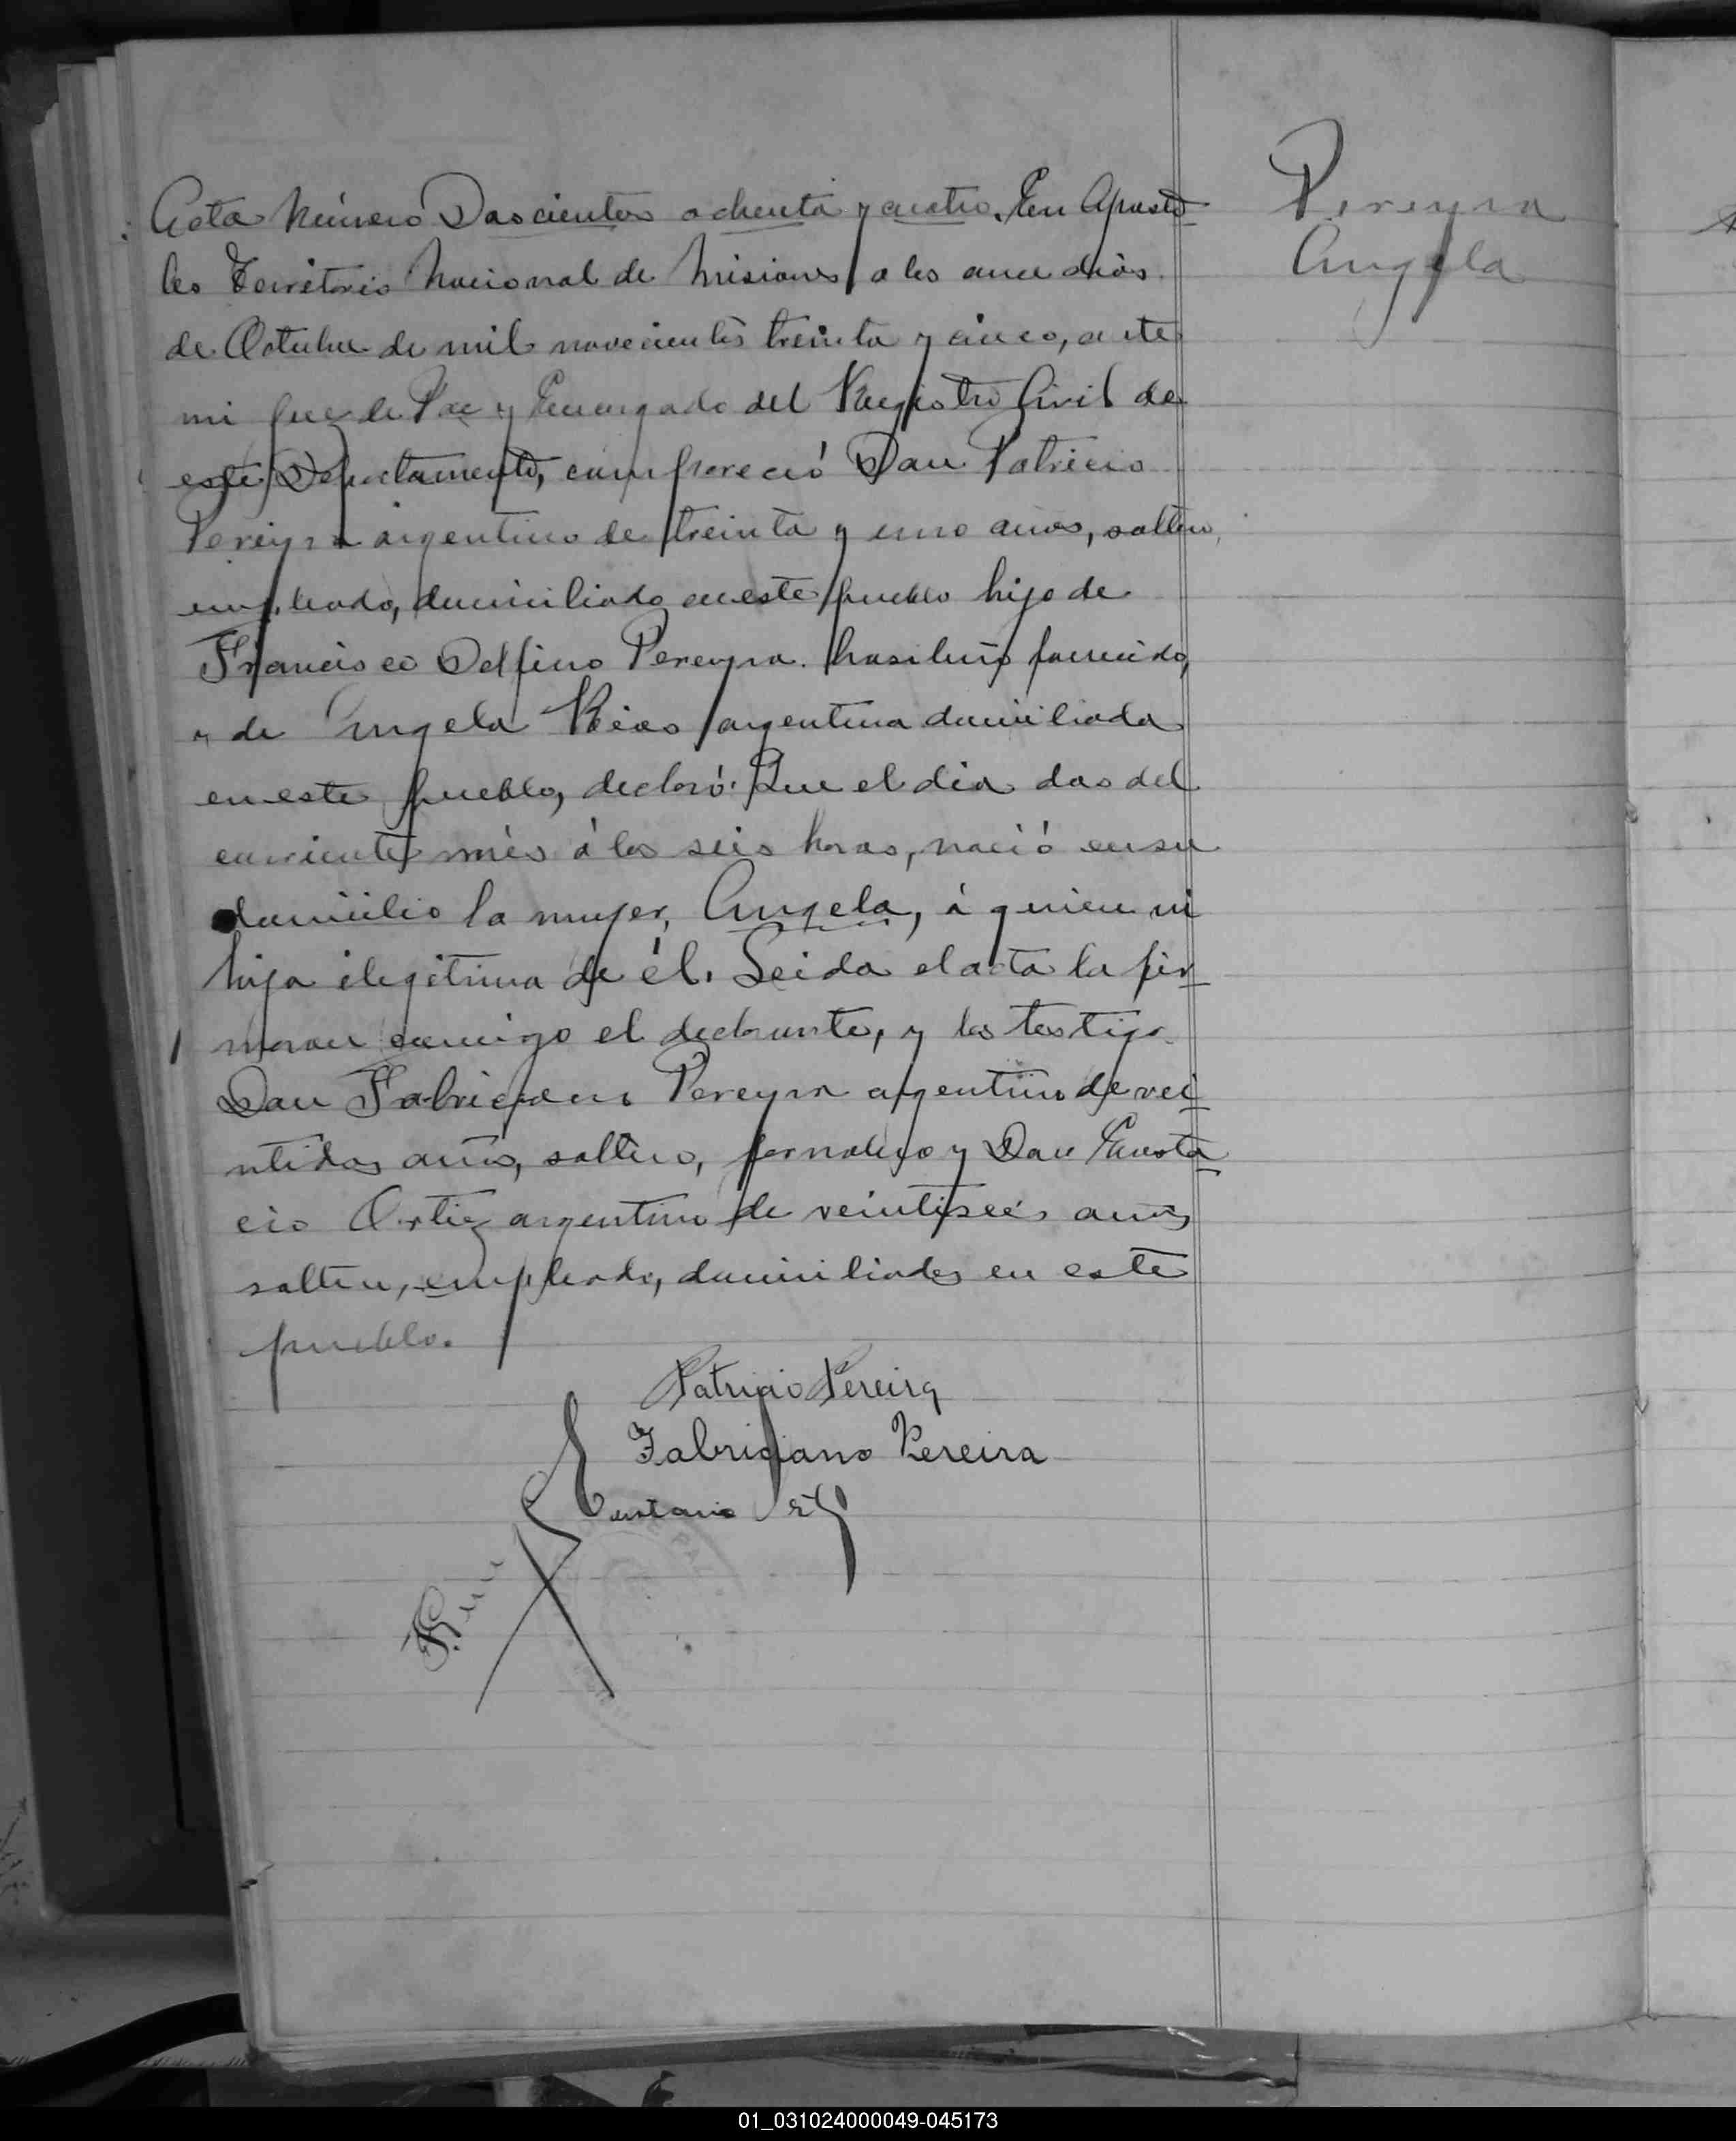 Pereyra
Angela
Acta Número Doscientos ochenta y cuatro. En Aposto
les Territorio Nacional de Misiones a los once dias
de Octubre de mil novecientos treinta y cinco, ante
mi Juez de Paz y Encargado del Registro Civil de
este Departamento, compareció Don Patricio
Pereyra argentino de treinta y uno años, soltero,
empleado, domiciliado en este pueblo hijo de
Francisco Delfino Pereyra brasilero fallecido,
y de Angela Rios argentina domiciliada
en este pueblo, declaró: Que el dia dos del
corriente mes á las seis horas, nació en su
domicilio la mujer, Angela, á quien vi
hija ilegitima de él. Leida el acta la fir
maron conmigo el declarante, y los testigo
Don Fabriciano Pereyra argentino de vei
ntidos años, soltero, jornalero y Don Eusta
cio Ortiz argentino de veintiseis años
soltero, empleado, domiciliados en este
pueblo.
Patricio Pereira
Fabriciano Pereira
Eustacio
01_031024000049-045173